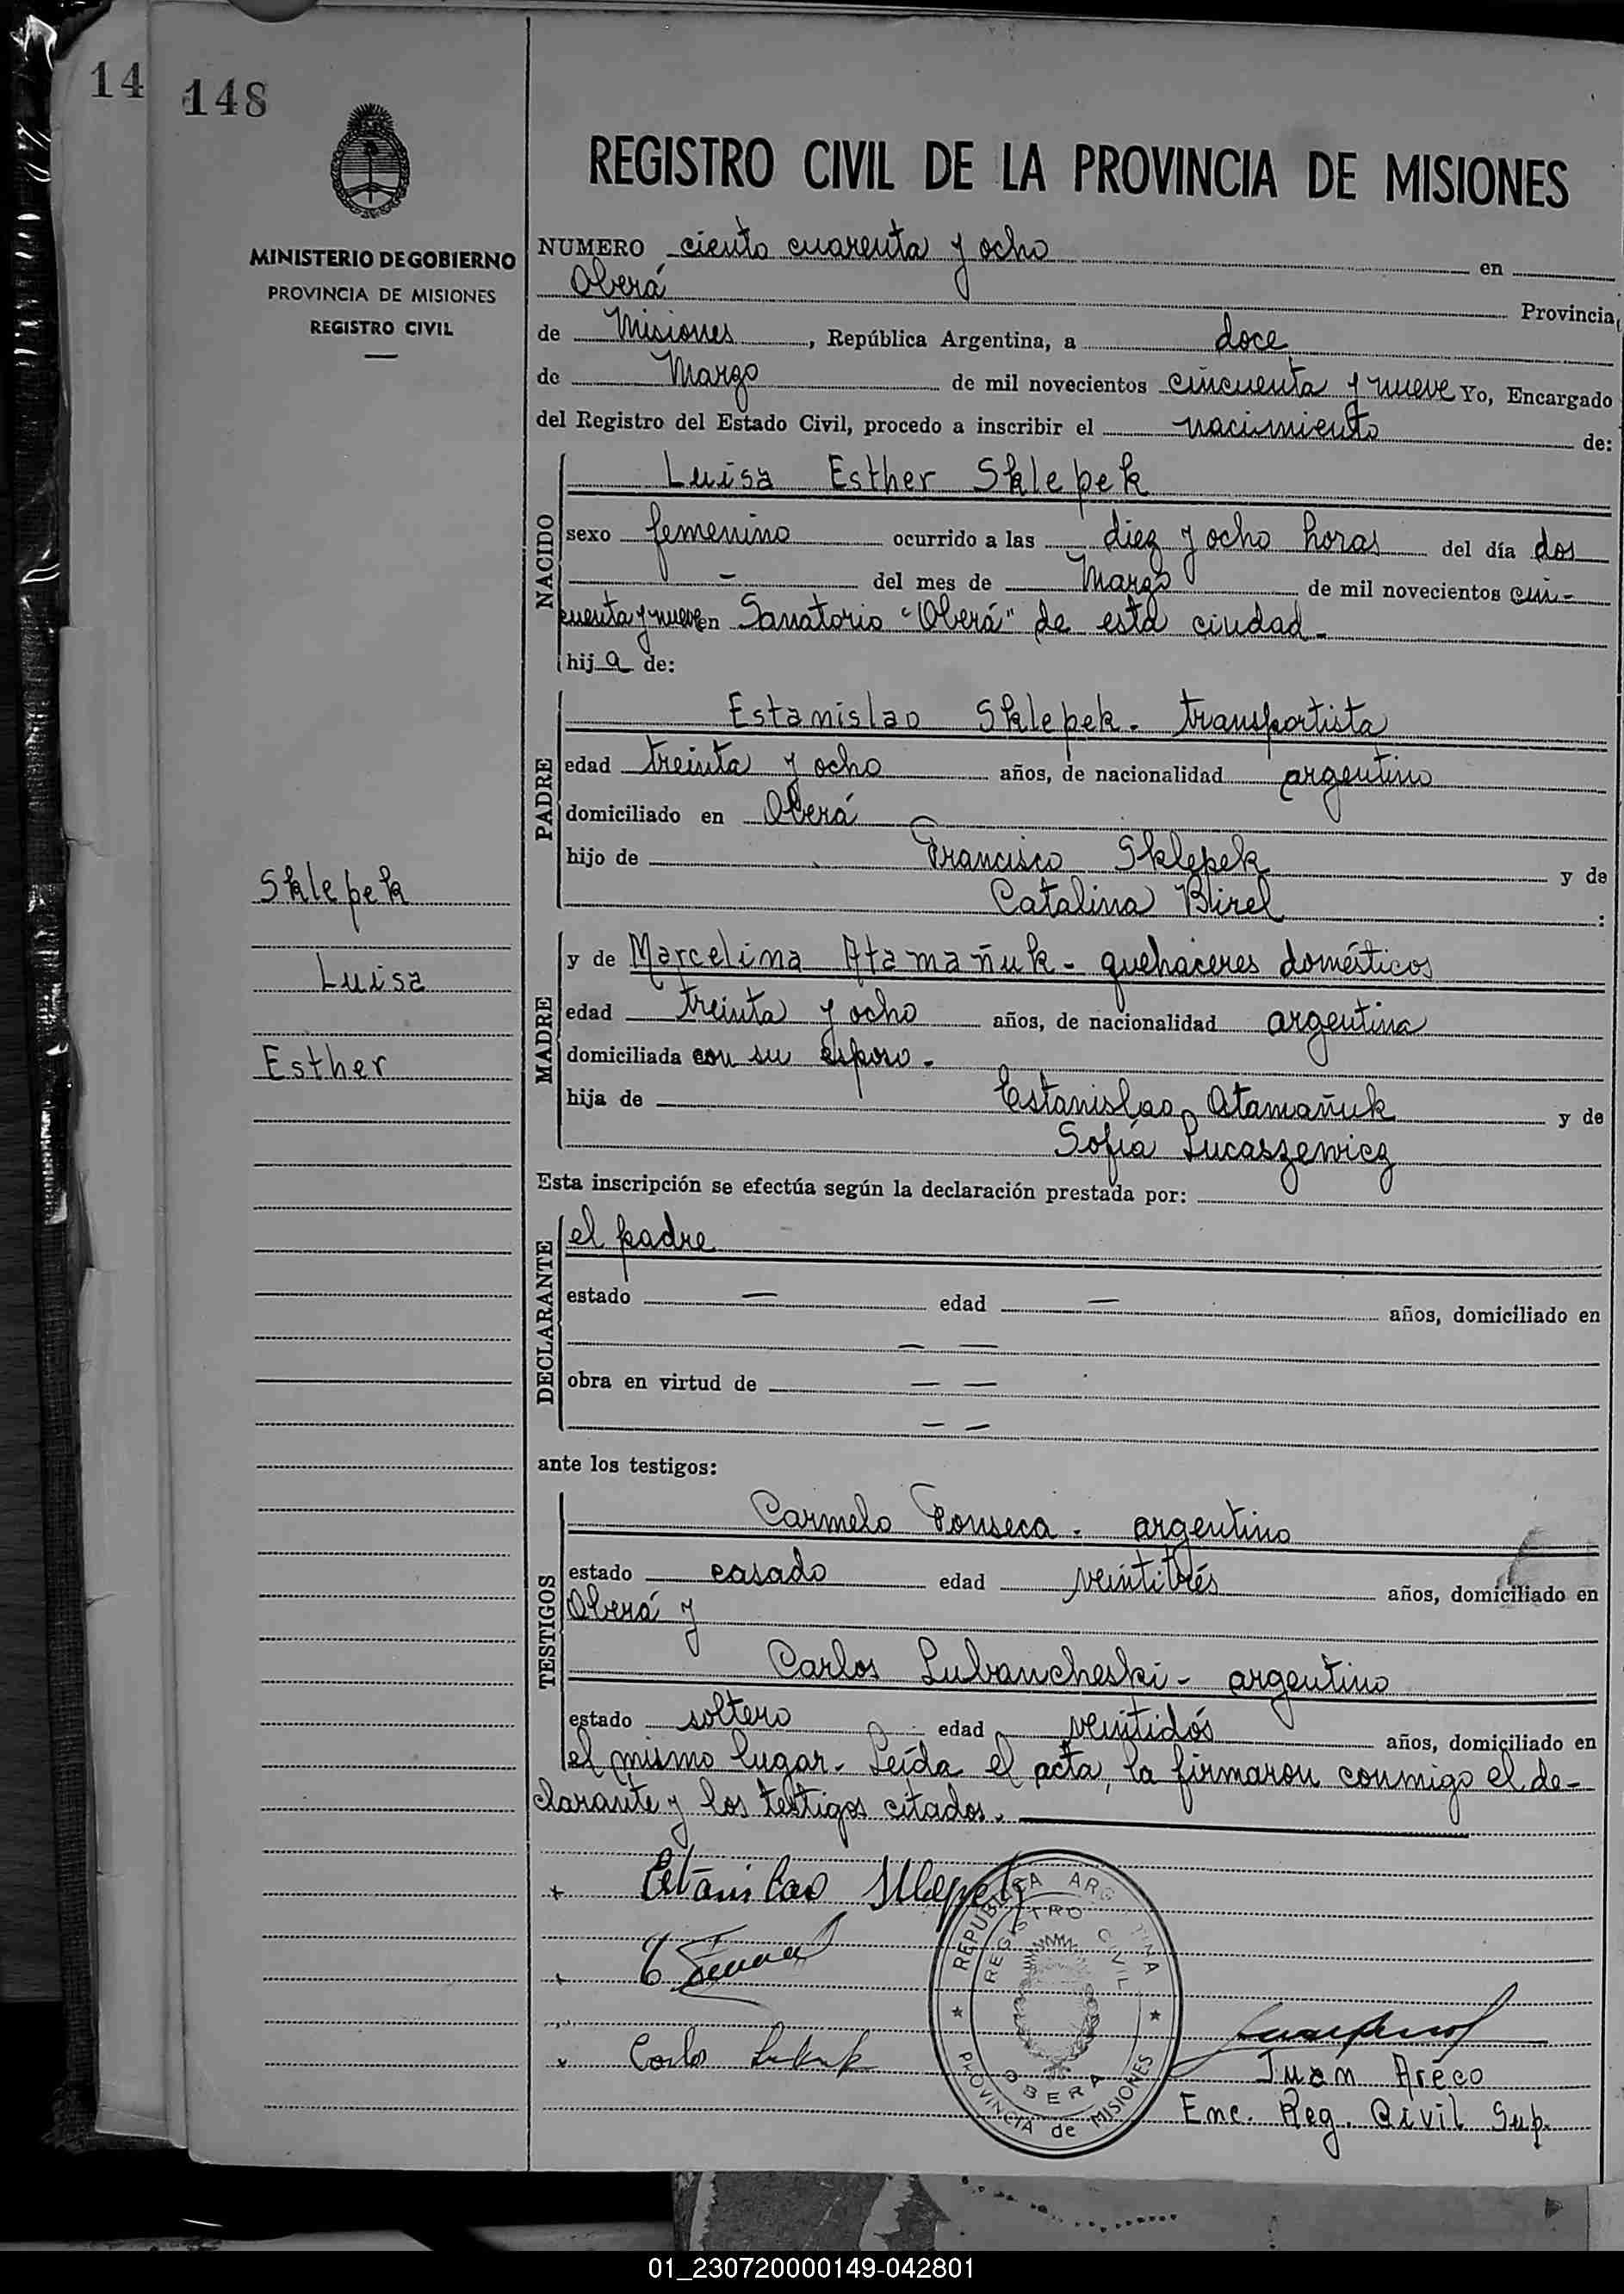 14
148
REGISTRO CIVIL DE LA PROVINCIA DE MISIONES
MINISTERIO DE GOBIERNO
PROVINCIA DE MISIONES
REGISTRO CIVIL
NUMERO ciento cuarenta y ocho en
Oberá Provincia,
de Misiones, República Argentina, a doce
de Marzo de mil novecientos cincuenta y nueve Yo, Encargado
del Registro del Estado Civil, procedo a inscribir el nacimiento de:
NACIDO
Luisa Esther Sklepek
sexo femenino ocurrido a las diez y ocho horas del día dos
- del mes de Marzo de mil novecientos cin-
cuenta y nueve en Sanatorio "Oberá" de esta ciudad-
hija de:
PADRE
Estanislao Sklepek- transportista
edad treinta y ocho años, de nacionalidad argentino
domiciliado en Oberá
hijo de Francisco Sklepek y de
Catalina Birel :
Sklepek
Luisa
Esther
MADRE
y de Marcelina Atamañuk- quehaceres domésticos
edad treinta y ocho años, de nacionalidad argentina
domiciliada con su esposo-
hija de Estanislao Atamañuk y de
Sofía Lucaszewicz
Esta inscripción se efectúa según la declaración prestada por:
DECLARANTE
el padre
estado — edad — años, domiciliado en
— —
obra en virtud de — —
— —
ante los testigos:
TESTIGOS
Carmelo Fonseca- argentino
estado casado edad veintitrés años, domiciliado en
Oberá y
Carlos Lubancheski- argentino
estado soltero edad veintidós años, domiciliado en
el mismo lugar- Leída el acta, la firmaron conmigo el de-
clarante y los testigos citados.
Estanislao Sklepek
Carlos
REPUBLICA ARGENTINA
REGISTRO CIVIL
OBERA
PROVINCIA de MISIONES
Juan Areco
Enc. Reg. Civil Sup.
01_230720000149-042801